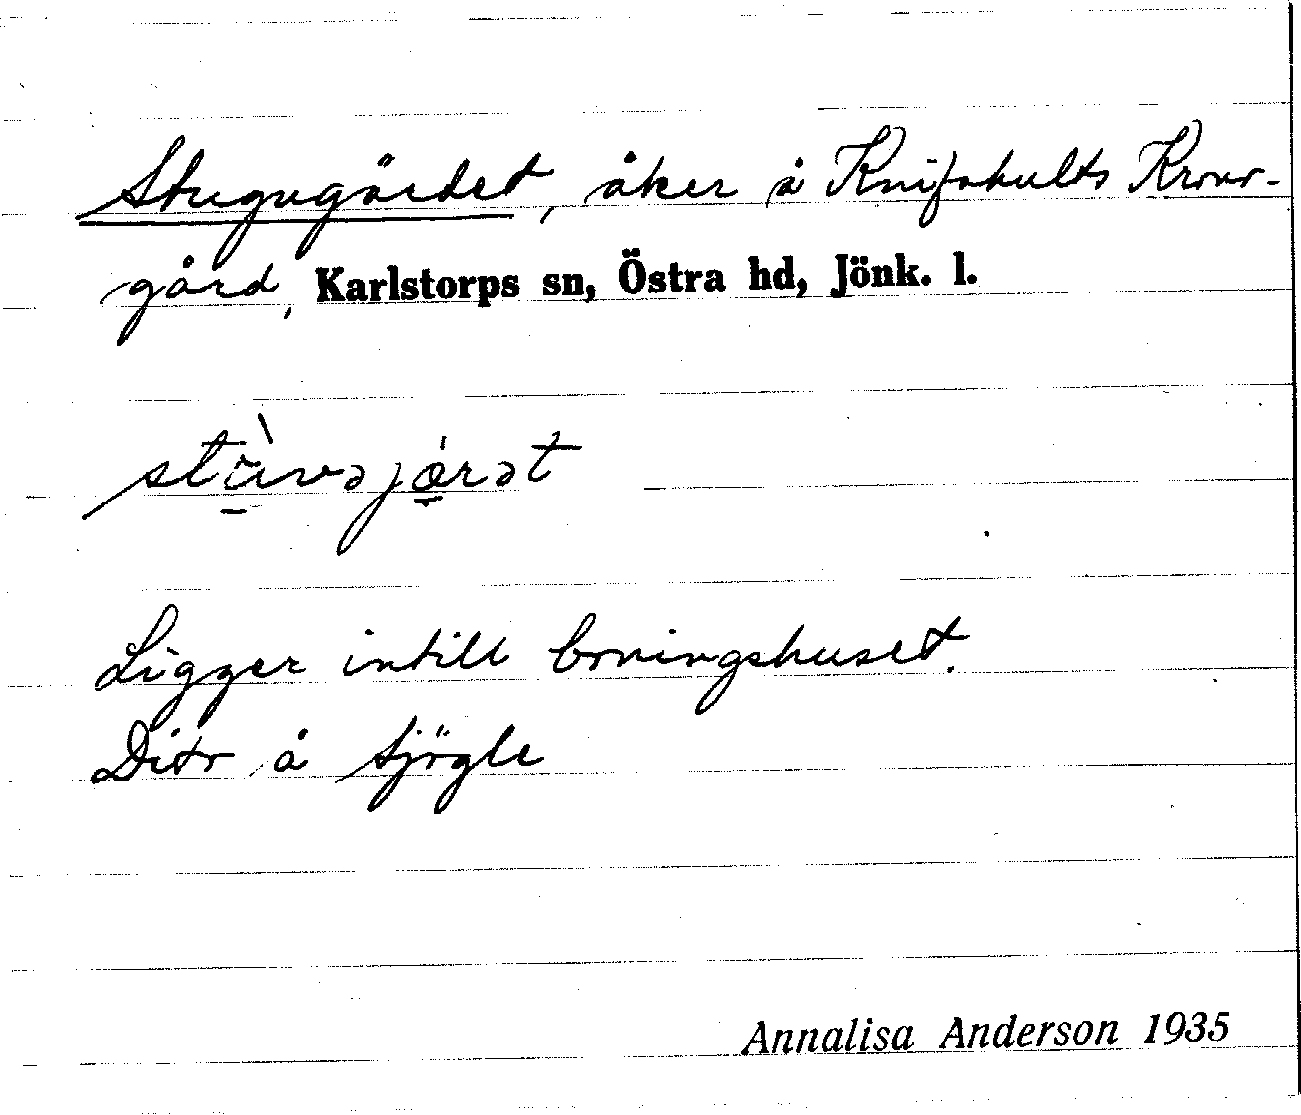 Stugugärdet, åker å Knifhults Krono-
gård, Karlstorps sn, Östra hd, Jönk. l.
stùvəjǽrət
Ligger intill boningshuset.
Dito å Sjögle
Annalisa Anderson 1935